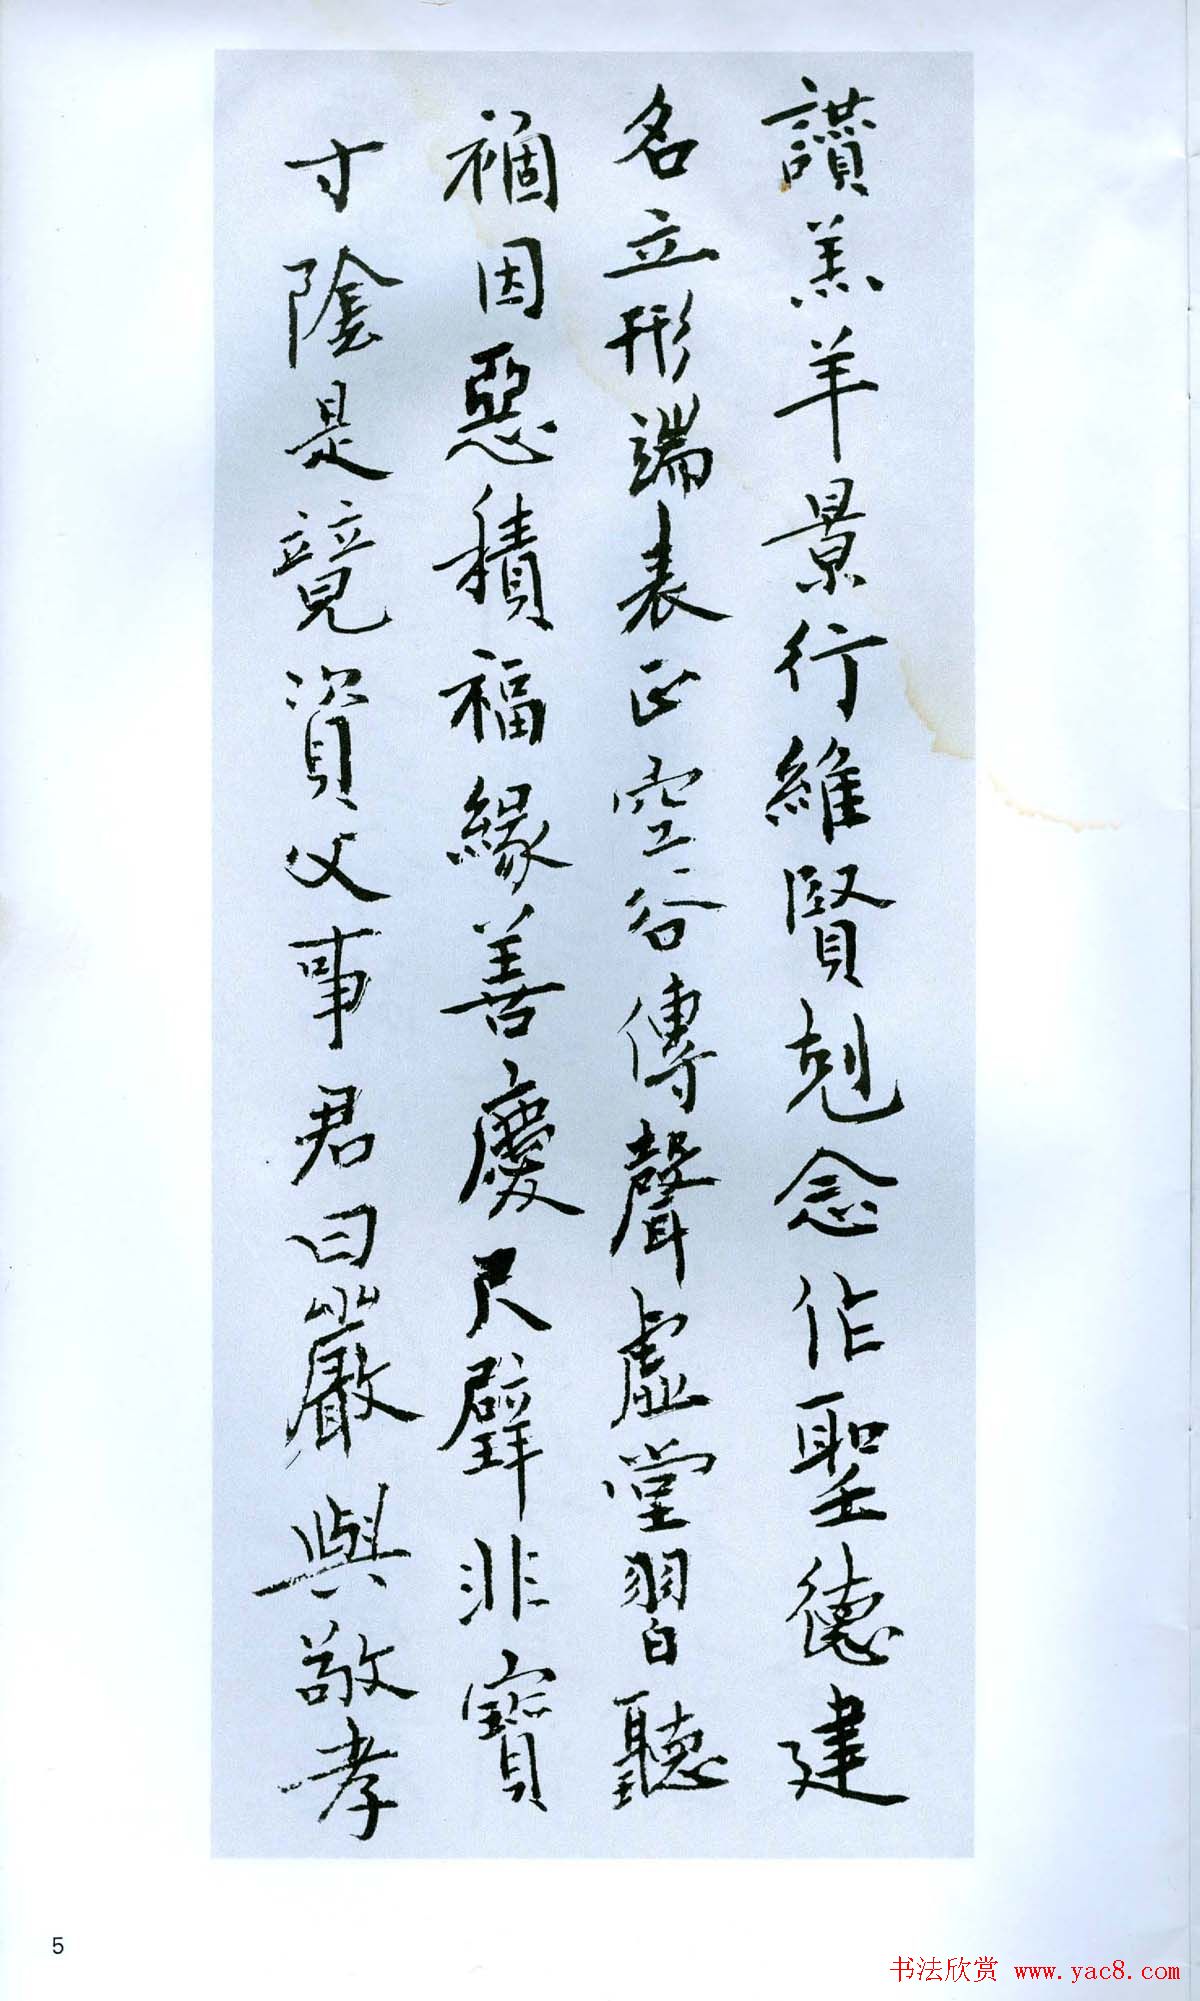 讚羔羊景行維賢剋念作聖德建
名立形端表正空谷傳聲虛堂習聽
禍因惡積福緣善慶尺璧非寶
寸陰是競資父事君曰嚴與敬孝
5
书法欣赏 www.yac8.com